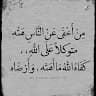 مِنْ أَخْفَى عَنِ النَّاسِ هَمَّهُ
مُتَوَكِّلاً عَلَى اللَّهِ،،
كَفَاهُ اللَّهُ مَا أَهَمَّهُ، وَأَرْضَاهُ